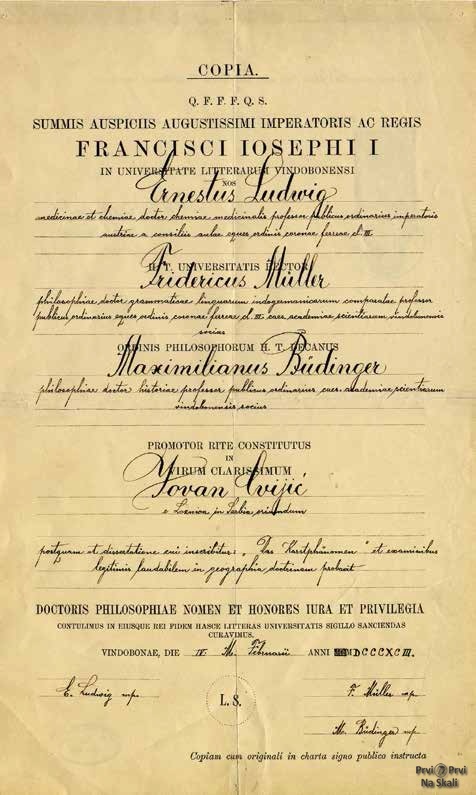 COPIA.
Q. F. F. F. Q. S.
SUMMIS AUSPICIIS AUGUSTISSIMI IMPERATORIS AC REGIS
FRANCISCI IOSEPHI I
IN UNIVERSITATE LITTERARUM VINDOBONENSI
NOS
Ernestus Ludwig
medicinae et chemiae doctor chemiae medicinalis professor publicus ordinarius imperatoris
austriae a consiliis aulae eques ordinis coronae ferreae cl. III
H. T. UNIVERSITATIS RECTOR
Fridericus Müller
philosophiae doctor grammaticae linguarum indogermanicarum comparatae professor
publicus ordinarius eques ordinis coronae ferreae cl. III caes. academiae scientiarum vindobonensis
socius
ORDINIS PHILOSOPHORUM H. T. DECANUS
Maximilianus Büdinger
philosophiae doctor historiae professor publicus ordinarius caes. academiae scientiarum
vindobonensis socius
PROMOTOR RITE CONSTITUTUS
IN
VIRUM CLARISSIMUM
Jovan Cvijić
e Loznica in Serbia oriundum
postquam et dissertatione cui inscribitur: „Das Karstphänomen" et examinibus
legitimis laudabilem in geographia doctrinam probavit
DOCTORIS PHILOSOPHIAE NOMEN ET HONORES IURA ET PRIVILEGIA
CONTULIMUS IN EIUSQUE REI FIDEM HASCE LITTERAS UNIVERSITATIS SIGILLO SANCIENDAS
CURAVIMUS.
VINDOBONAE, DIE IV. M. Februarii ANNI MDCCCXCIII.
E. Ludwig mp.
L. S.
F. Müller mp.
M. Büdinger mp
Copiam cum originali in charta signo publico instructa
Prvi Prvi
Na Skali